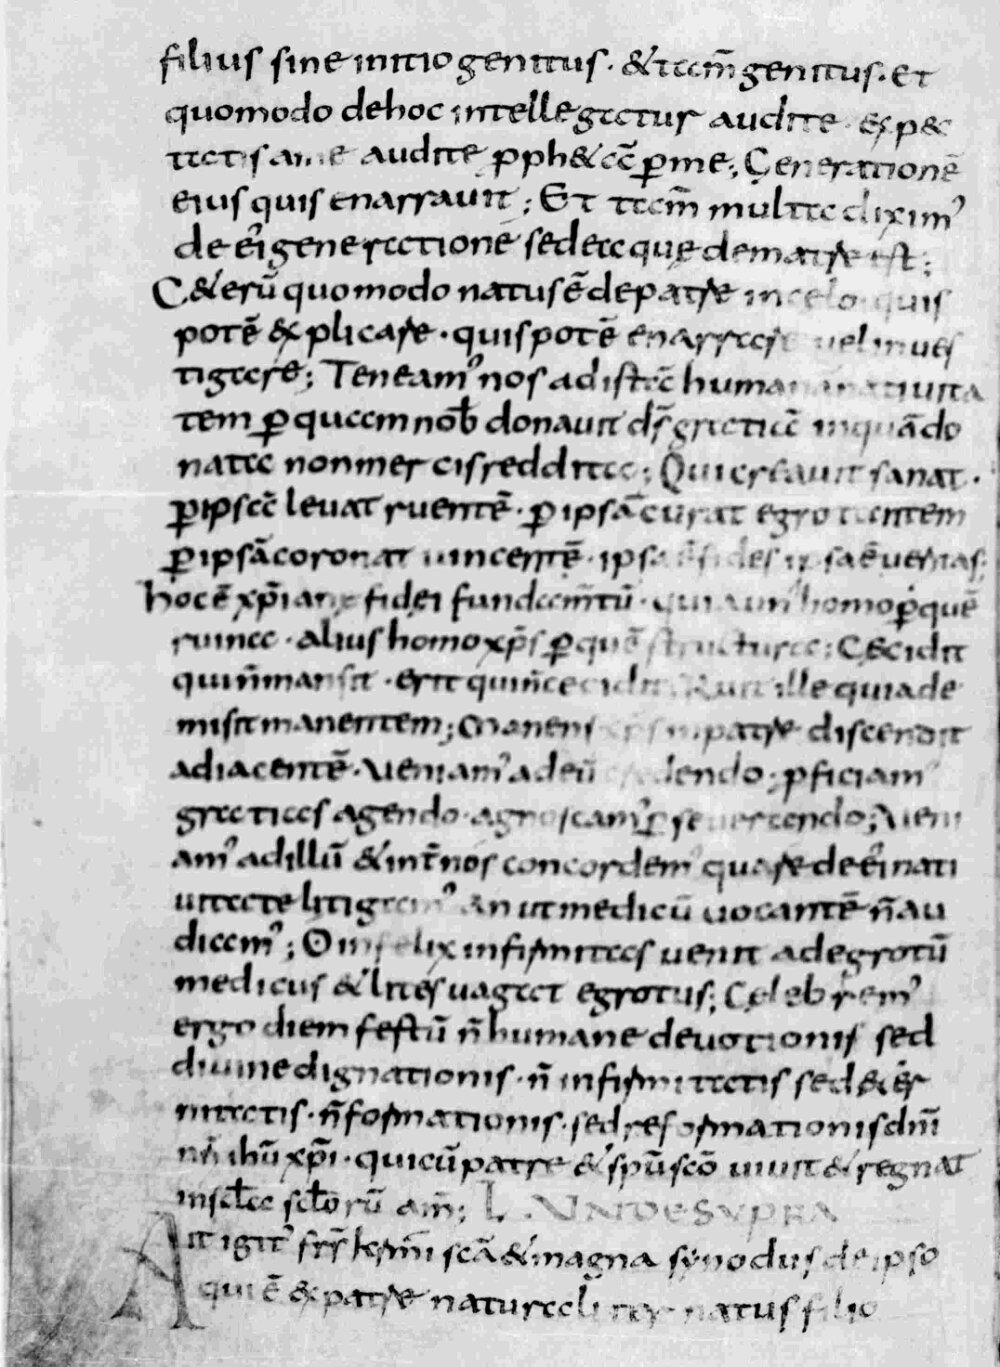 filius sine initio genitus · & tam̄ genitus · Et
quomodo dehoc intellegatur audite · exp&c
tatis ame audite pph&ā p̱me ; Generationē
eius quis enarrauit ; Et tam̄ multa diximꝰ
de eī generatione sed eaque dematre est ;
C&erū quomodo natus ē depatre incelo · quis
potē explicare · quis potē enarrare uel inues
tigare ; Teneamꝰ nos adistā humanā natiuita
tem p̱ quam nob̄ donauit d̄s gratiā inquādo
nata non mercis reddita ; Qui creauit sanat ·
p̱ ipsā leuat ruentē · p̱ ipsā curat egrotantem
p̱ ipsā coronat uincentē · ipsa ē fides ipsa ē ueritas ;
hoc ē xp̄iane fidei fundam̄tū · quia un' homo p̱quē
ruina · alius homo xp̄s p̱ quē structura ; Cecidit
qui n̄ mansit · erit qui n̄ cecidit ; Ruit ille quia de
misit manentem ; Manens xp̄s inpatre discendit
adiacentē · Ueniamꝰ adeū credendo ; pficiamꝰ
gratias agendo · agnoscamꝰ p̱seuerando ; Ueni
amꝰ adillū & int̄ nos concordemꝰ quare de eī nati
uitate litigamꝰ an ut medicū uocantē n̄ au
diamꝰ ; O infelix infirmitas uenit adegrotū
medicus & lites uagat egrotus ; Celebremꝰ
ergo diem festū n̄ humane deuotionis sed
diuine dignationis · n̄ infirmitatis sed & ēr
nitatis · n̄ formationis · sed reformationis dn̄i
nr̄i ih̄u xp̄i · qui cū patre & sp̄u sc̄o uiuit & regnat
in scl̄a scl̄orū am̄ ; L · UNDE SUPRA
Ait igit' fr̄s km̄i sc̄a & magna synodus de ipso
qui ē expatre naturaliter natus filio